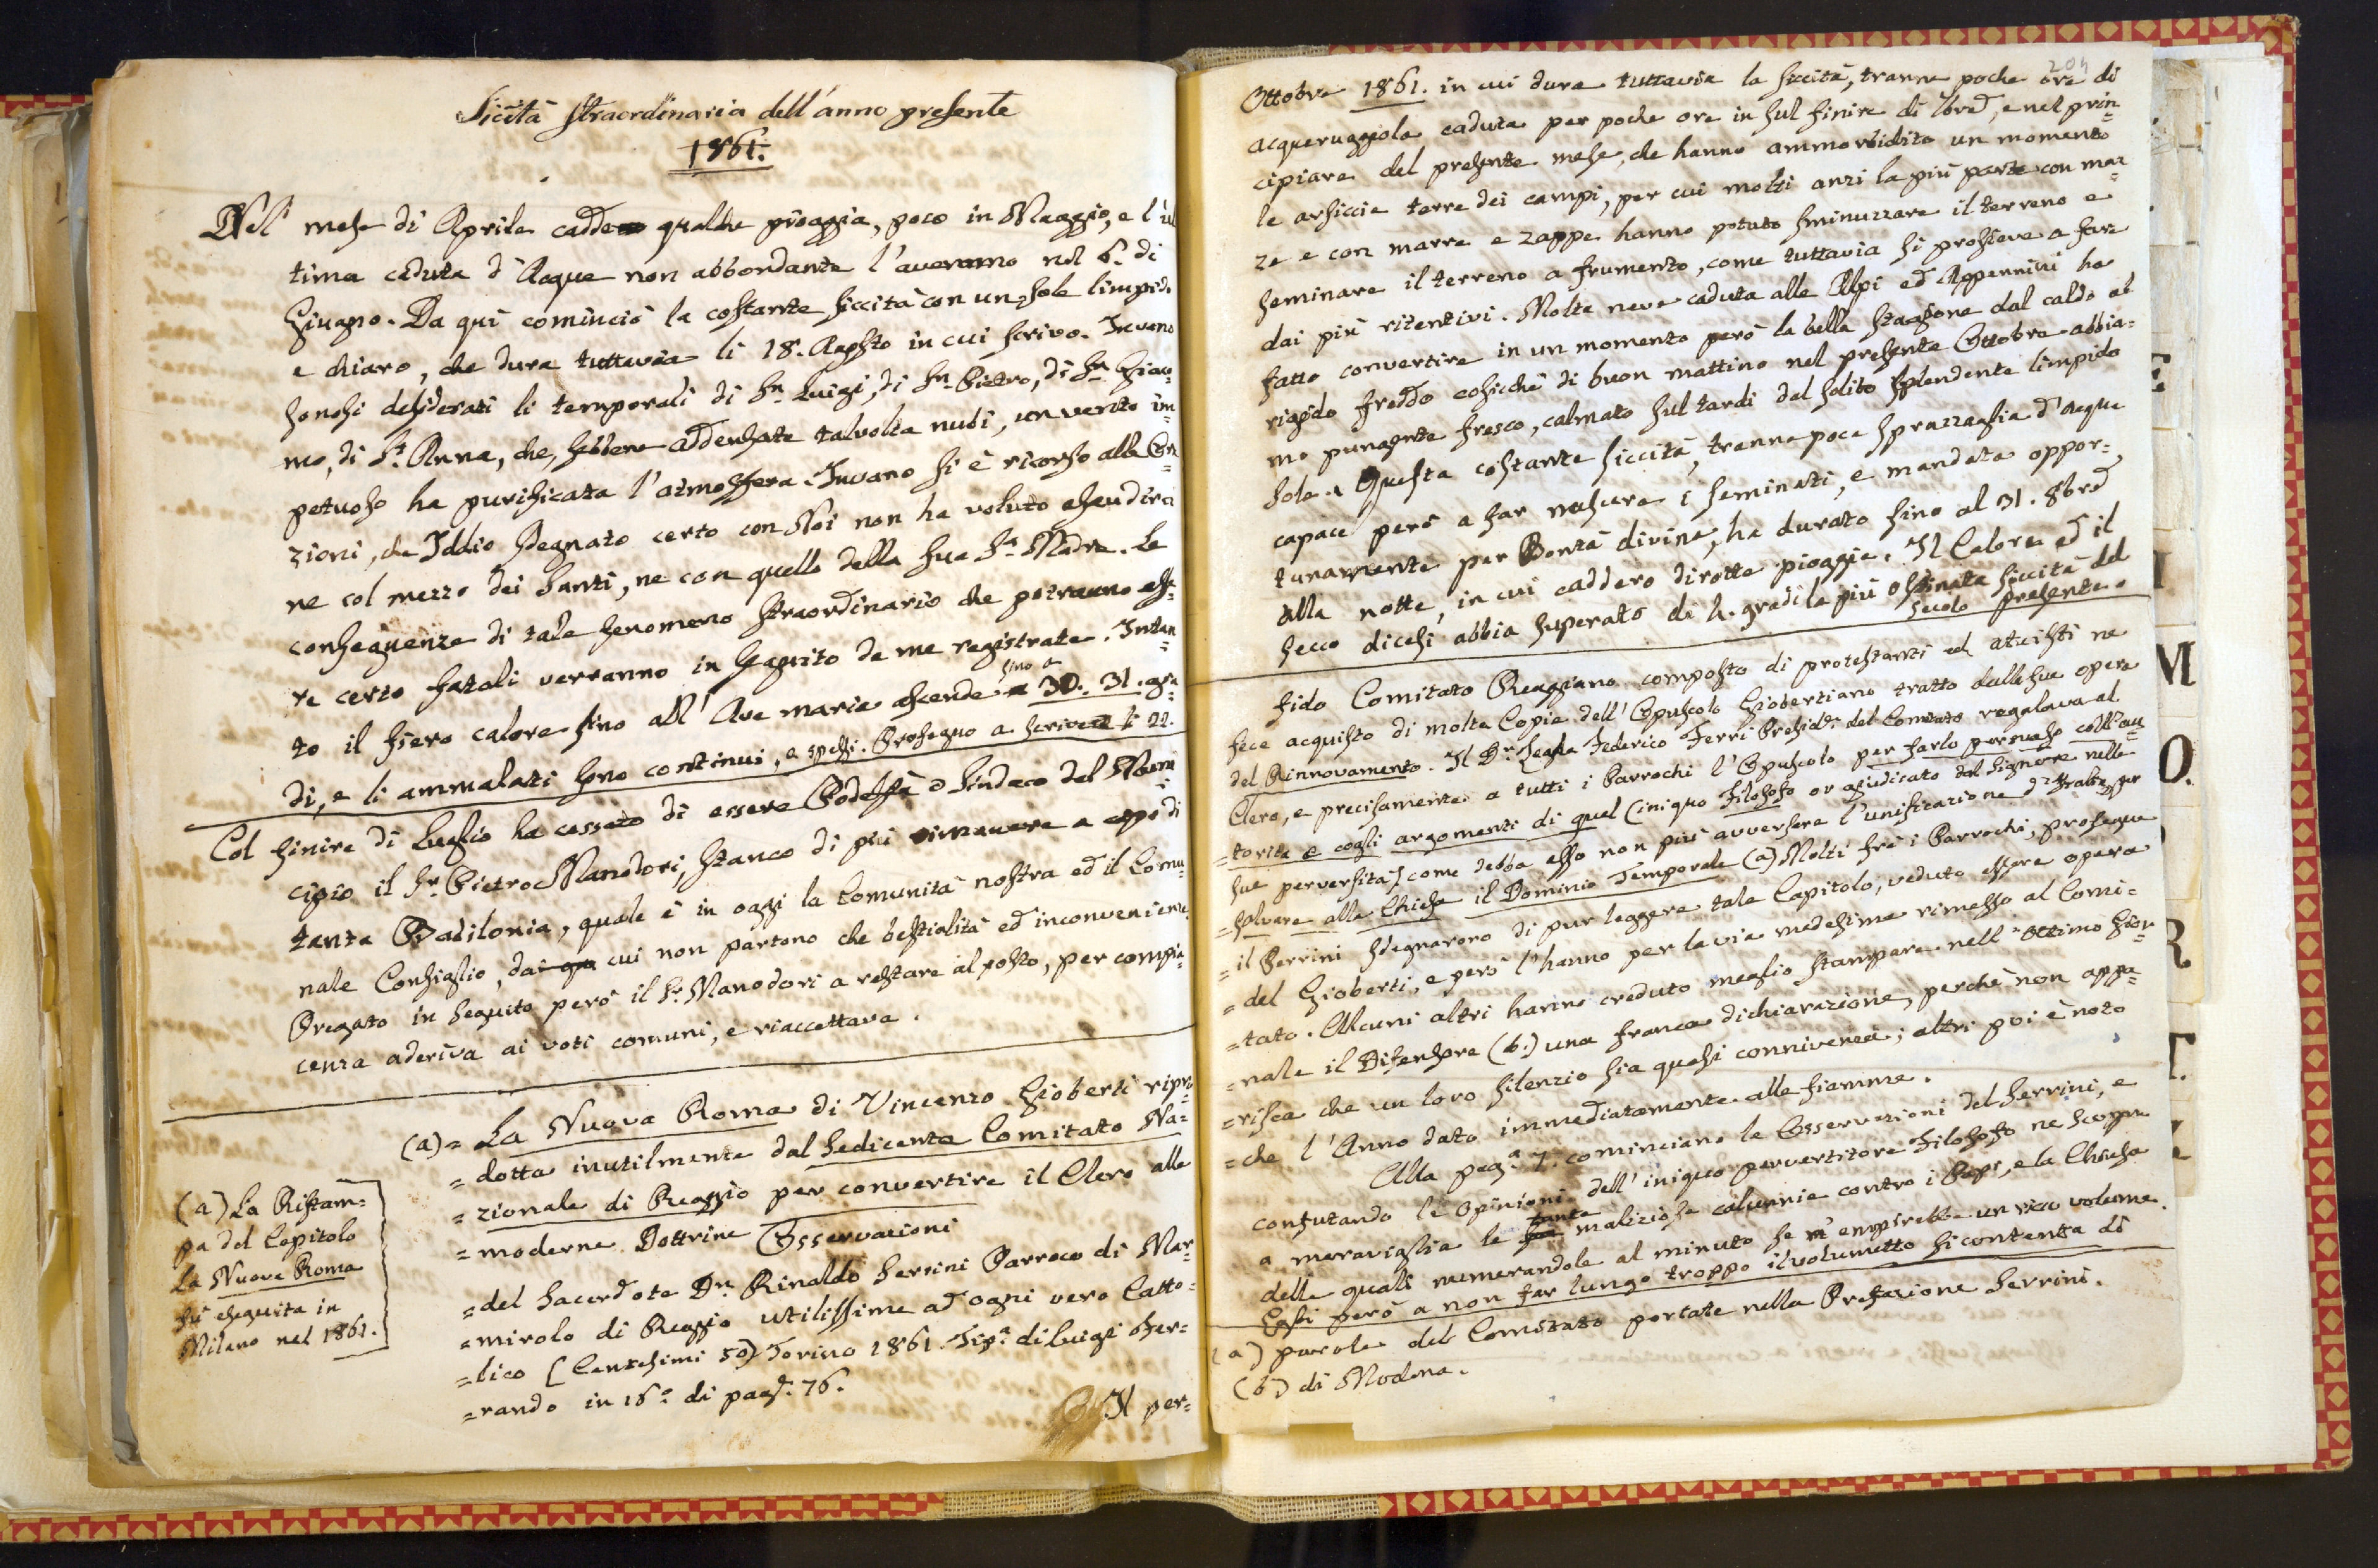 Siccità straordinaria dell'anno presente
1861.
Nel mese di Aprile cadde qualche pioggia, poco in Maggio, e l'ul
tima caduta d'Acqua non abbondante l'avemmo nel 6. di
Giugno. Da qui cominciò la costante siccità con un sole limpido
e chiaro, che dura tuttavia li 18. Agosto in cui scrivo. Invano
sonosi desiderati li temporali di Sn. Luigi, di Sn. Pietro, di Sn. Giaco=
mo, di St. Anna, che, sebbene addensate talvolta nubi, un vento im=
petuoso ha purificata l'atmosfera. Invano si è ricorso alle Ora
zioni, che Iddio sdegnato certo con Noi non ha voluto esaudirci
ne col mezzo dei Santi, ne con quello della sua Sa. Madre. Le
conseguenze di tale fenomeno straordinario che potranno esse=
re certo fatali verranno in seguito da me registrate. Intan=
to il fiero calore sino all'Ave maria ascende sino a 30. 31. gra
di, e li ammalati sono continui, e spessi. Proseguo a scrivere li 22.
Col finire di Luglio ha cessato di essere Podestà o Sindaco del Muni
cipio il Sr. Pietro Manodori, stanco di più rimanere a capo di
tanta Babilonia, quale è in oggi la Comunità nostra ed il Comu=
nale Consiglio, da cui non partono che bestialità ed inconvenienze.
Pregato in seguito però il Sr. Manodori a restare al posto, per compia=
cenza aderiva ai voti comuni, e riaccettava.
(a) = La Nuova Roma di Vincenzo Gioberti ripro=
= dotta inutilmente dal sedicente Comitato Na=
= zionale di Reggio per convertire il Clero alle
= moderne Dottrine Osservazioni
= del Sacerdote Dn. Rinaldo Serrini Parroco di Mar=
= mirolo di Reggio utilissime ad ogni vero Catto=
= lico (Centesimi 50) Torino 1861. Tipa. di Luigi Fer=
= rando in 16o. di pag. 76.
Il per=
(a) La Ristam=
pa del Capitolo
La Nuova Roma
fu eseguita in
Milano nel 1861.
204
Ottobre 1861. in cui dura tuttavia la siccità, tranne poche ore di
acqueruggiola caduta per poche ore in sul finire di 7bre, e nel prin=
cipiare del presente mese, che hanno ammorbidito un momento
le arsiccie terre dei campi, per cui molti anzi la più parte con maz
ze e con marre e zappe hanno potuto sminuzzare il terreno e
seminare il terreno a frumento, come tuttavia si prosieve a fare
dai più ritentivi. Molta neve caduta alle Alpi ed Appennini ha
fatto convertire in un momento però la bella stagione dal caldo al
rigido freddo cosicchè di buon mattino nel presente Ottobre abbia=
mo pungente fresco, calmato sul tardi dal solito splendente limpido
sole. Questa costante siccità, tranne poca sprazzaglia d'acqua
capace però a far nascere i seminati, e mandata oppor=
tunamente per Bontà divina, ha durato fino al 31. 8bre
alla notte, in cui caddero dirotte pioggie. Il Calore ed il
secco dicesi abbia superato di 4. gradi la più ostinata siccità del
secolo presente.
fido Comitato Reggiano composto di protestanti ed ateisti ne
fece acquisto di molte Copie dell'Opuscolo Giobertiano tratto dalle sue opere
del Rinnovamento. Il Dr. Legale Federico Ferri Preside. del Comitato regalava al
Clero, e precisamente a tutti i Parrochi l'Opuscolo per farlo persuaso coll'au
= torità e cogli argomenti di quel (iniquo Filosofo or giudicato dal Signore nelle
sue perversità) come debba esso non più avversare l'unificazione d'Italia, per
= salvare alla Chiesa il Dominio Temporale (a) Molti frà i Parrochi, prosegue
= il Serrini sdegnarono di pur leggere tale Capitolo, veduto essere opera
= del Gioberti, e però l'hanno per la via medesima rimesso al Comi=
= tato. Alcuni altri hanno creduto meglio stampare nell'ottimo Gior=
= nale il Difensore (b.) una franca dichiarazione, perchè non appa=
= risca che un loro silenzio sia quasi connivenza; altri poi è noto
= che l'Anno dato immediatamente alle fiamme.
Alla paga. 7. cominciano le Osservazioni del Serrini, e
confutando le Opinioni dell'iniquo pervertitore Filosofo ne scopre
a meraviglia le tante maliziose calunnie contro i Papi, e la Chiesa
delle quali numerandole al minuto se n'empirebbe un ricco volume.
Egli però a non far lungo troppo il volumetto si contenta di
(a) parole del Comitato portate nella Prefazione Serrini.
(b) di Modena.